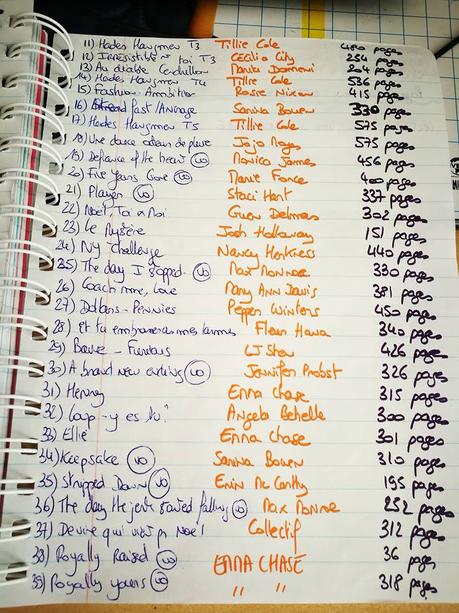 11) Hades Hangmen T3 Tillie Cole 480 pages
12) Irrésistible toi T3 Cecilia City 254 pages
13) Au diable Cendrillon 204 pages
14) Hades Hangmen T4 Tillie Cole 536 pages
15) Fashion Ambition Rosie Nixon 413 pages
16) Steadfast / Ancrage Sarina Bowen 330 pages
17) Hades Hangmen T5 Tillie Cole 575 pages
18) Une douce odeur de pluie Jojo Moyes 575 pages
19) Defiance of the heart VO Monica James 456 pages
20) Five Years Gone VO Marie Force 400 pages
21) Player VO Staci Hart 337 pages
22) Noël, Toi & Moi Gwen Delmas 302 pages
23) Le Mystère Josh Holloway 151 pages
24) NY challenge Nancy Herkness 440 pages
25) The day I stopped VO Max Monroe 330 pages
26) Coach me, Love Mary Ann Davis 381 pages
27) Dollars - Pennies Pepper Winters 450 pages
28) Et tu embrasseras mes larmes Fleur Hana 340 pages
29) LJ Shen 426 pages
30) A brand new ending VO Jennifer Probst 326 pages
31) Henry Emma Chase 315 pages
32) Loup - y es tu? Angela Behelle 300 pages
33) Ellie Emma Chase 301 pages
34) Keepsake VO Sarina Bowen 310 pages
35) Stripped Down VO Erin McCarthy 195 pages
36) The day He started falling VO Max Monroe 252 pages
37) Devine qui vient pr Noël! Collectif 312 pages
38) Royally Raised VO EMMA CHASE 36 pages
39) Royally yours VO " " 318 pages